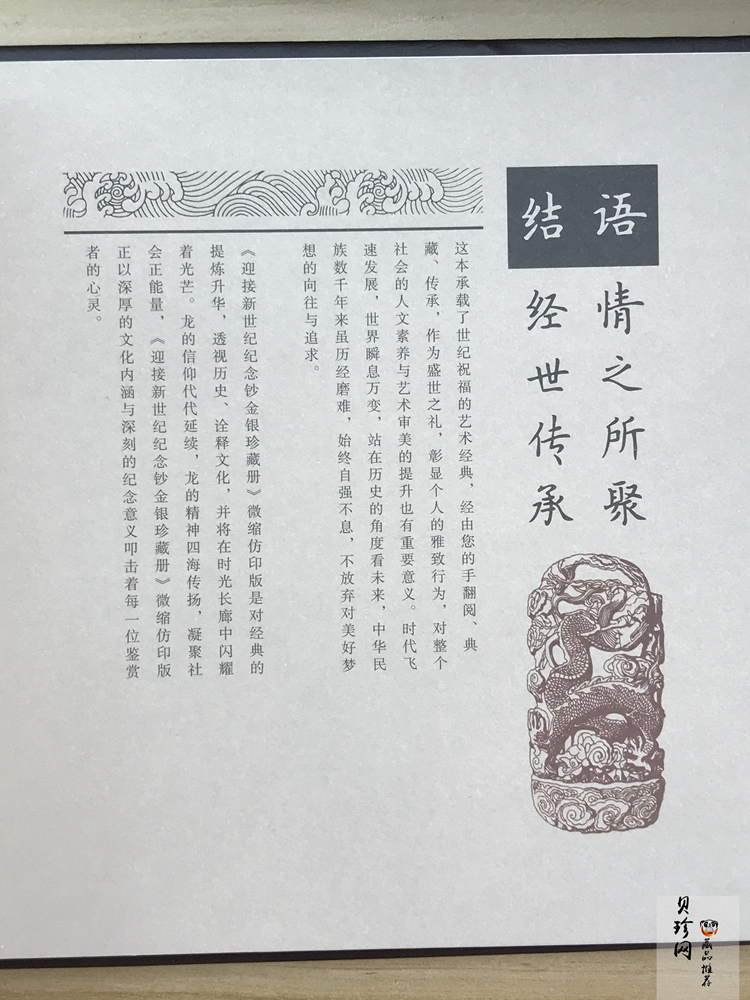 结语
情之所聚
经世传承
这本承载了世纪祝福的艺术经典，经由您的手翻阅、典
藏、传承，作为盛世之礼，彰显个人的雅致行为，对整个
社会的人文素养与艺术审美的提升也有重要意义。时代飞
速发展，世界瞬息万变，站在历史的角度看未来，中华民
族数千年来虽历经磨难，始终自强不息，不放弃对美好梦
想的向往与追求。
《迎接新世纪纪念钞金银珍藏册》微缩仿印版是对经典的
提炼升华，透视历史、诠释文化，并将在时光长廊中闪耀
着光芒。龙的信仰代代延续，龙的精神四海传扬，凝聚社
会正能量，《迎接新世纪纪念钞金银珍藏册》微缩仿印版
正以深厚的文化内涵与深刻的纪念意义叩击着每一位鉴赏
者的心灵。
贝珍网
藏品推荐